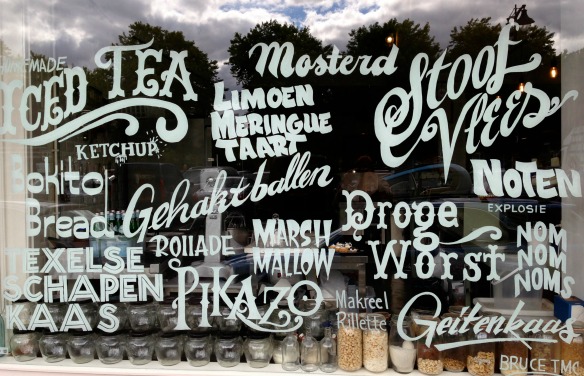 HOMEMADE
ICED TEA
KETCHUP
Mosterd
LIMOEN
MERINGUE
TAART
Stoof
Vlees
NOTEN
EXPLOSIE
Bokito
Bread
Gehaktballen
ROllADE
MARSH
MALLOW
Droge
Worst
NOM
NOM
NOMS
TEXELSE
SCHAPEN
KAAS
PIKAZO
Makreel
Rillette
Geitenkaas
BRUCE TMC